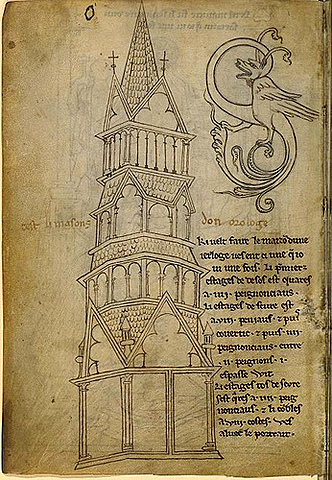 cest li masons don orologe
Ki velt faire le maizō dune
ierloge ves ent ci une q̄ io
vi une fois. Li p̄miers
estages de desos est quares
a .iiii. peignonciaus.
Li estages de seure est
a .viii. peniaus. ⁊ puis
covertic. ⁊ puis .iiii.
peignonciaus. entre
.ii. peignons .i.
espasse wit.
Li estages tos de seure
sest q̄res a .iiii. peig
nonciaus. ⁊ li cōbles
a .viii. costes. ves
aluec le portrait.